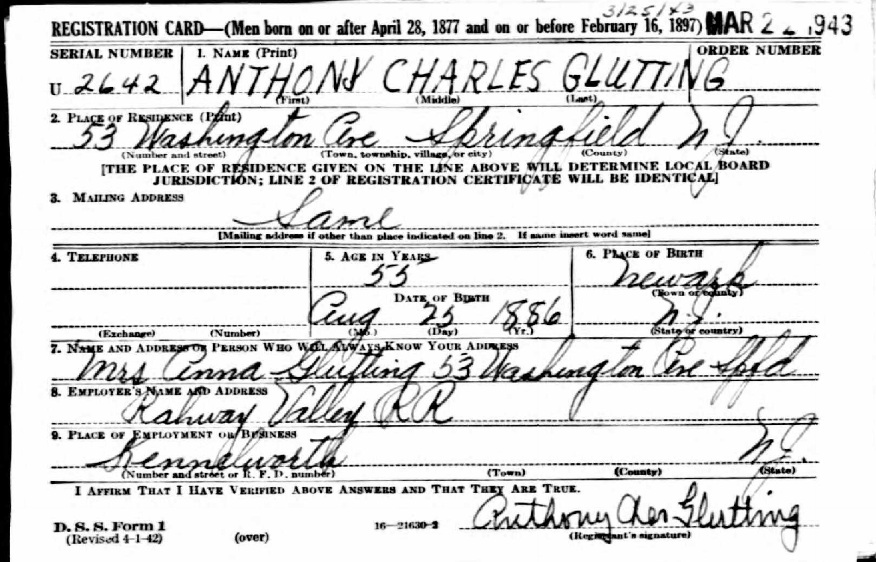 3125143
REGISTRATION CARD—(Men born on or after April 28, 1877 and on or before February 16, 1897) MAR 22 1943
SERIAL NUMBER 1. NAME (Print) ORDER NUMBER
U 2642 ANTHONY CHARLES GLUTTING
(First) (Middle) (Last)
2. PLACE OF RESIDENCE (Print)
53 Washington Ave Springfield N.J.
(Number and street) (Town, township, village, or city) (County) (State)
[THE PLACE OF RESIDENCE GIVEN ON THE LINE ABOVE WILL DETERMINE LOCAL BOARD
JURISDICTION; LINE 2 OF REGISTRATION CERTIFICATE WILL BE IDENTICAL]
3. MAILING ADDRESS
Same
[Mailing address if other than place indicated on line 2. If same insert word same]
4. TELEPHONE 5. AGE IN YEARS 6. PLACE OF BIRTH
55 Newark
DATE OF BIRTH (Town or county)
Aug 25 1886 N.J.
(Exchange) (Number) (Mo.) (Day) (Yr.) (State or country)
7. NAME AND ADDRESS OF PERSON WHO WILL ALWAYS KNOW YOUR ADDRESS
Mrs Anna Glutting 53 Washington Ave Spfd
8. EMPLOYER'S NAME AND ADDRESS
Rahway Valley RR
9. PLACE OF EMPLOYMENT OR BUSINESS
Kennelworth N.J.
(Number and street or R. F. D. number) (Town) (County) (State)
I AFFIRM THAT I HAVE VERIFIED ABOVE ANSWERS AND THAT THEY ARE TRUE.
Anthony Chas Glutting
D. S. S. Form 1 16—21630-2 (Registrant's signature)
(Revised 4-1-42) (over)